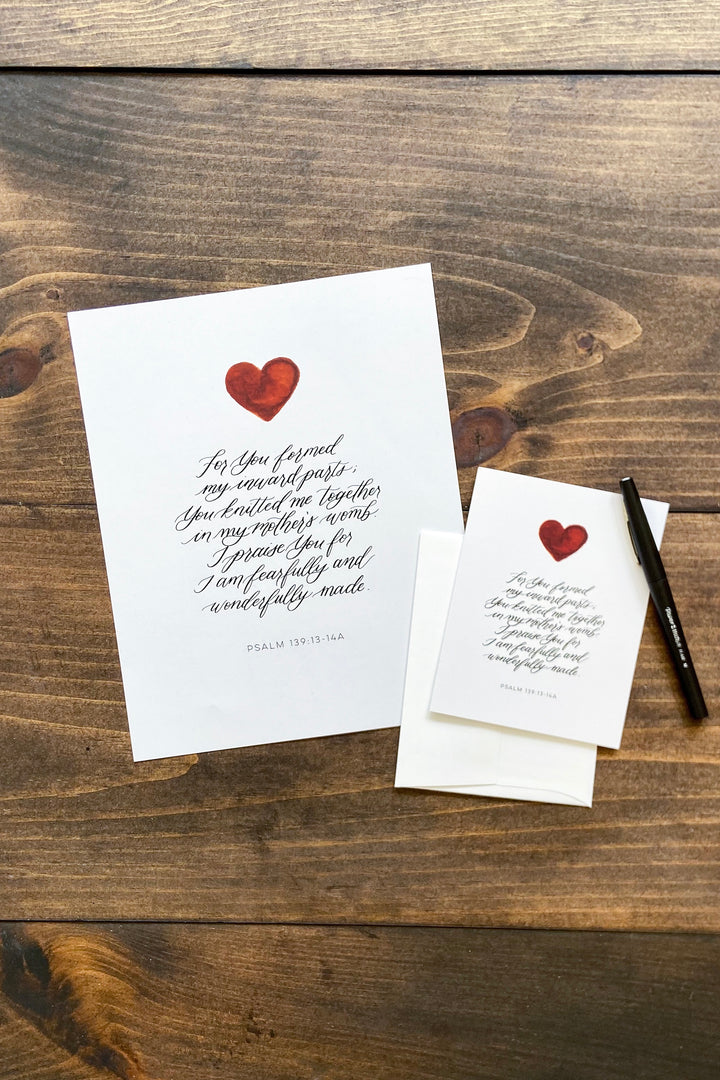 For You formed
my inward parts;
You knitted me together
in my mother's womb.
I praise You for
I am fearfully and
wonderfully made.
PSALM 139:13-14A
For You formed
my inward parts;
You knitted me together
in my mother's womb.
I praise You for
I am fearfully and
wonderfully made.
PSALM 139:13-14A